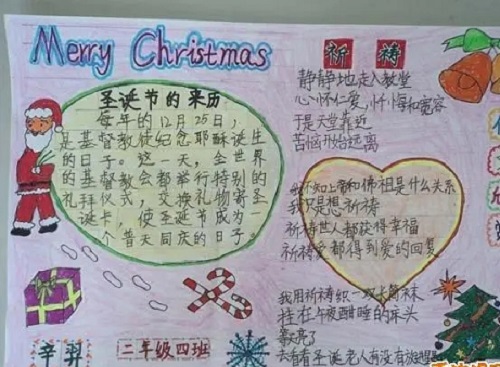 Merry Christmas
圣诞节的来历
每年的12月25日，
是基督教徒纪念耶稣诞生
的日子。这一天，全世界
的基督教会都举行特别的
礼拜仪式，交换礼物寄圣
诞卡，使圣诞节成为一
个普天同庆的日子。
辛羿
二年级四班
祈祷
静静地走入教堂
心怀仁爱，忏悔和宽容
于是天堂靠近
苦恼开始远离
不知上帝和佛祖是什么关系
我只是想祈祷
祈祷世人都获得幸福
祈祷爱都得到爱的回复
我用祈祷织一双长筒袜
挂在午夜酣睡的床头
天亮了
去看看圣诞老人有没有放